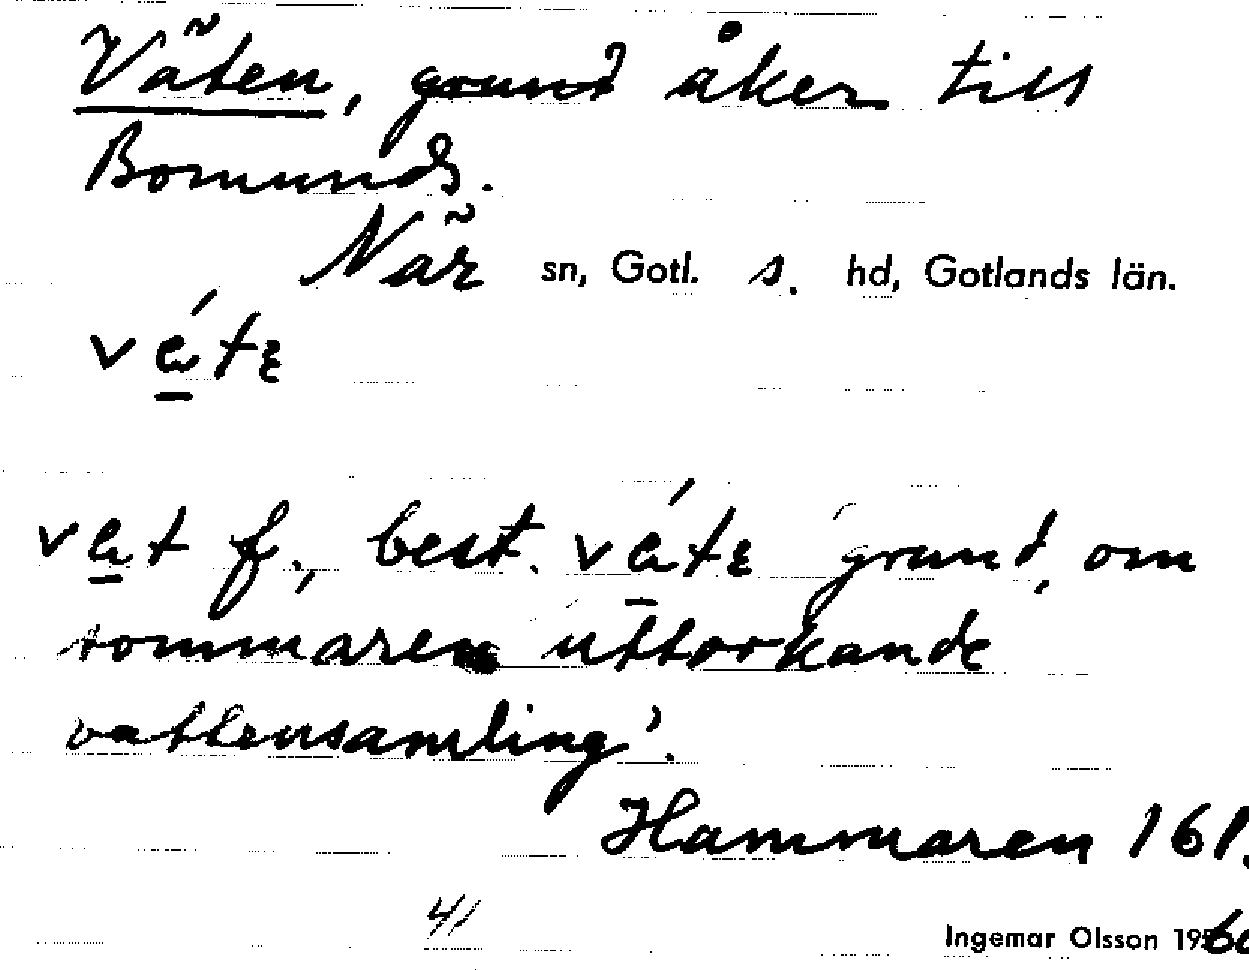 Väten, grund åker till
Bomunds.
När sn, Gotl. s. hd, Gotlands län.
vá̱tε
va̱t f., best. vá̱tε 'grund, om
sommaren uttorkande
vattensamling'.
Hammaren 161.
41
Ingemar Olsson 1960